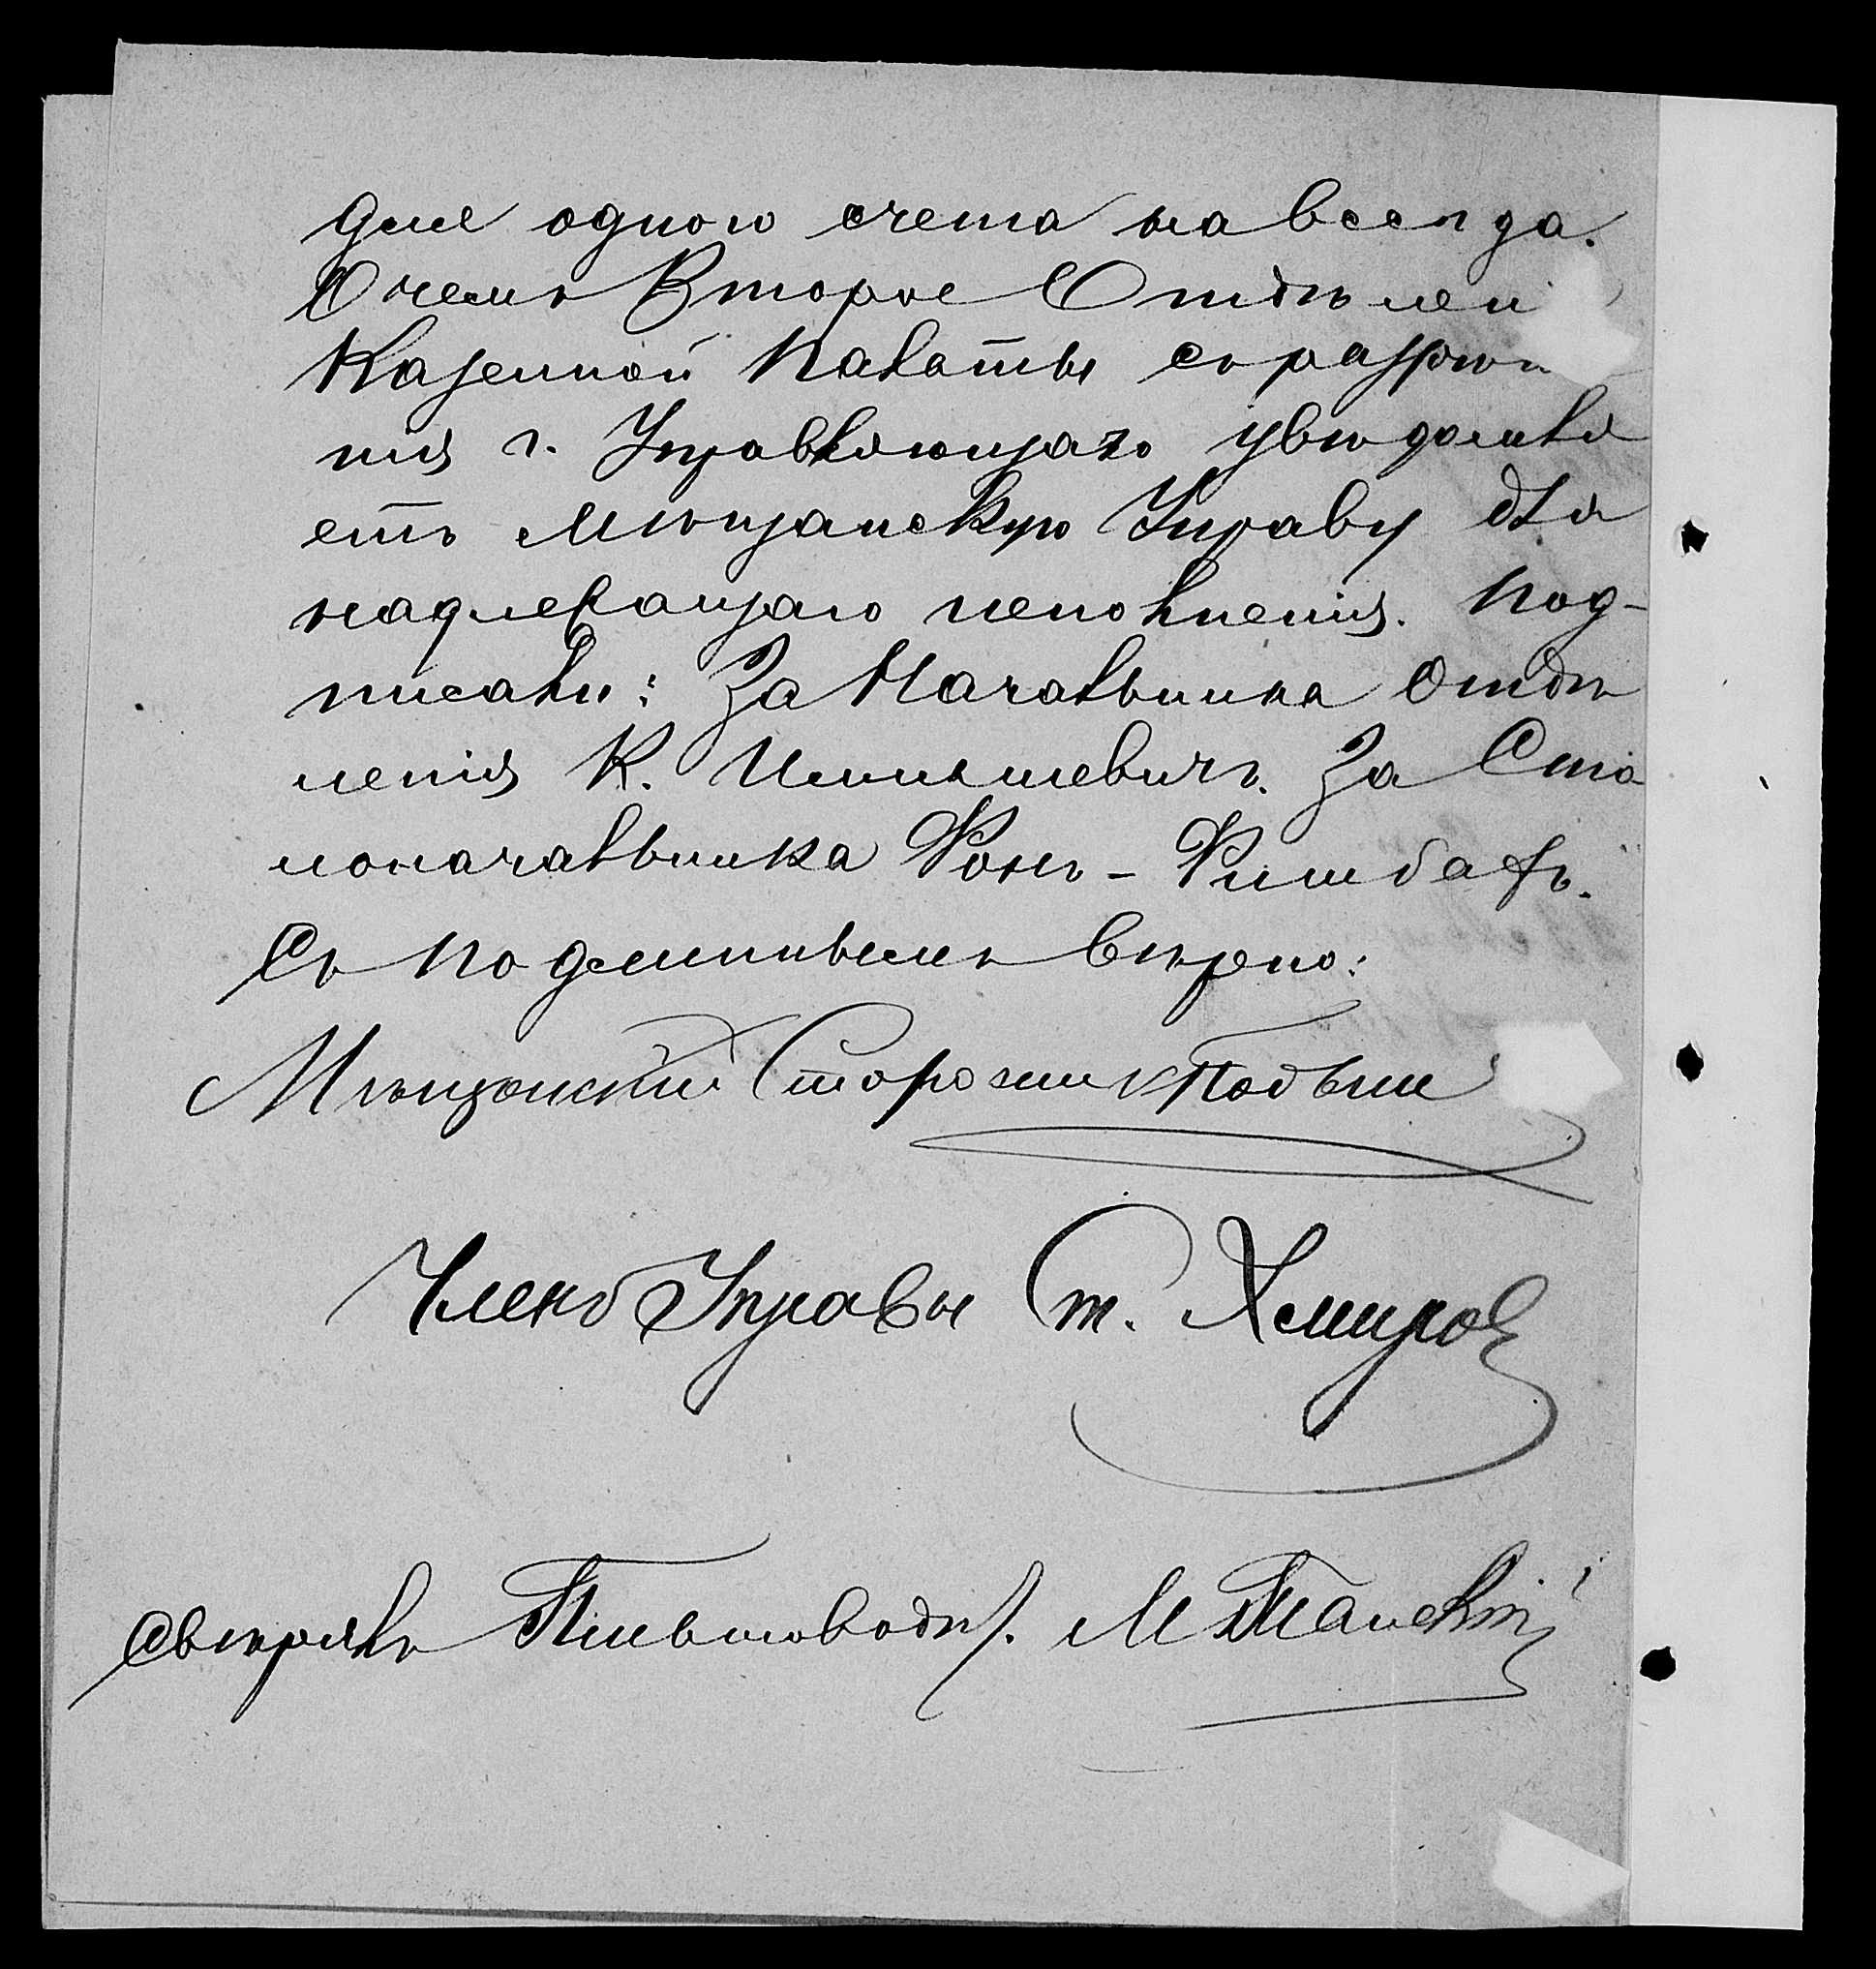 для одного счета навсегда.
О чемъ Второе Отдѣлені
Казенной Палаты съ разрѣше
нія г. Управляющаго увѣдомля
етъ Мѣщанскую Управу для
надлежащаго исполненія. Под-
писали: За Начальника Отдѣ
ленія К. За Сто
лоначальника Фонъ-Фишбахъ.
Съ подлиннымъ вѣрно:
Мѣщанскій
Членъ Управы Ст. Хмыров
Свѣрялъ Письмоводит. М.